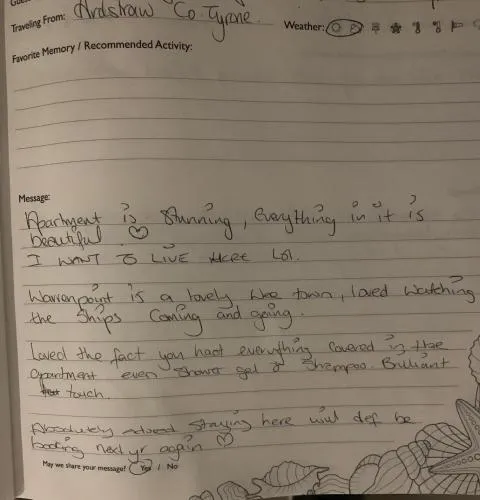 Traveling From: Ardstraw Co. Tyrone.
Weather:
Favorite Memory / Recommended Activity:
Message:
Apartment is Stunning, Everything in it is
beautiful.
I WANT TO LIVE HERE LOL.
Warrenpoint is a lovely wee town, loved watching
the Ships Coming and going.
Loved the fact you had everything Covered in the
apartment even Shower gel & Shampoo. Brilliant
touch.
Absolutely adored Staying here will def be
booking next yr again
May we share your message? Yes / No